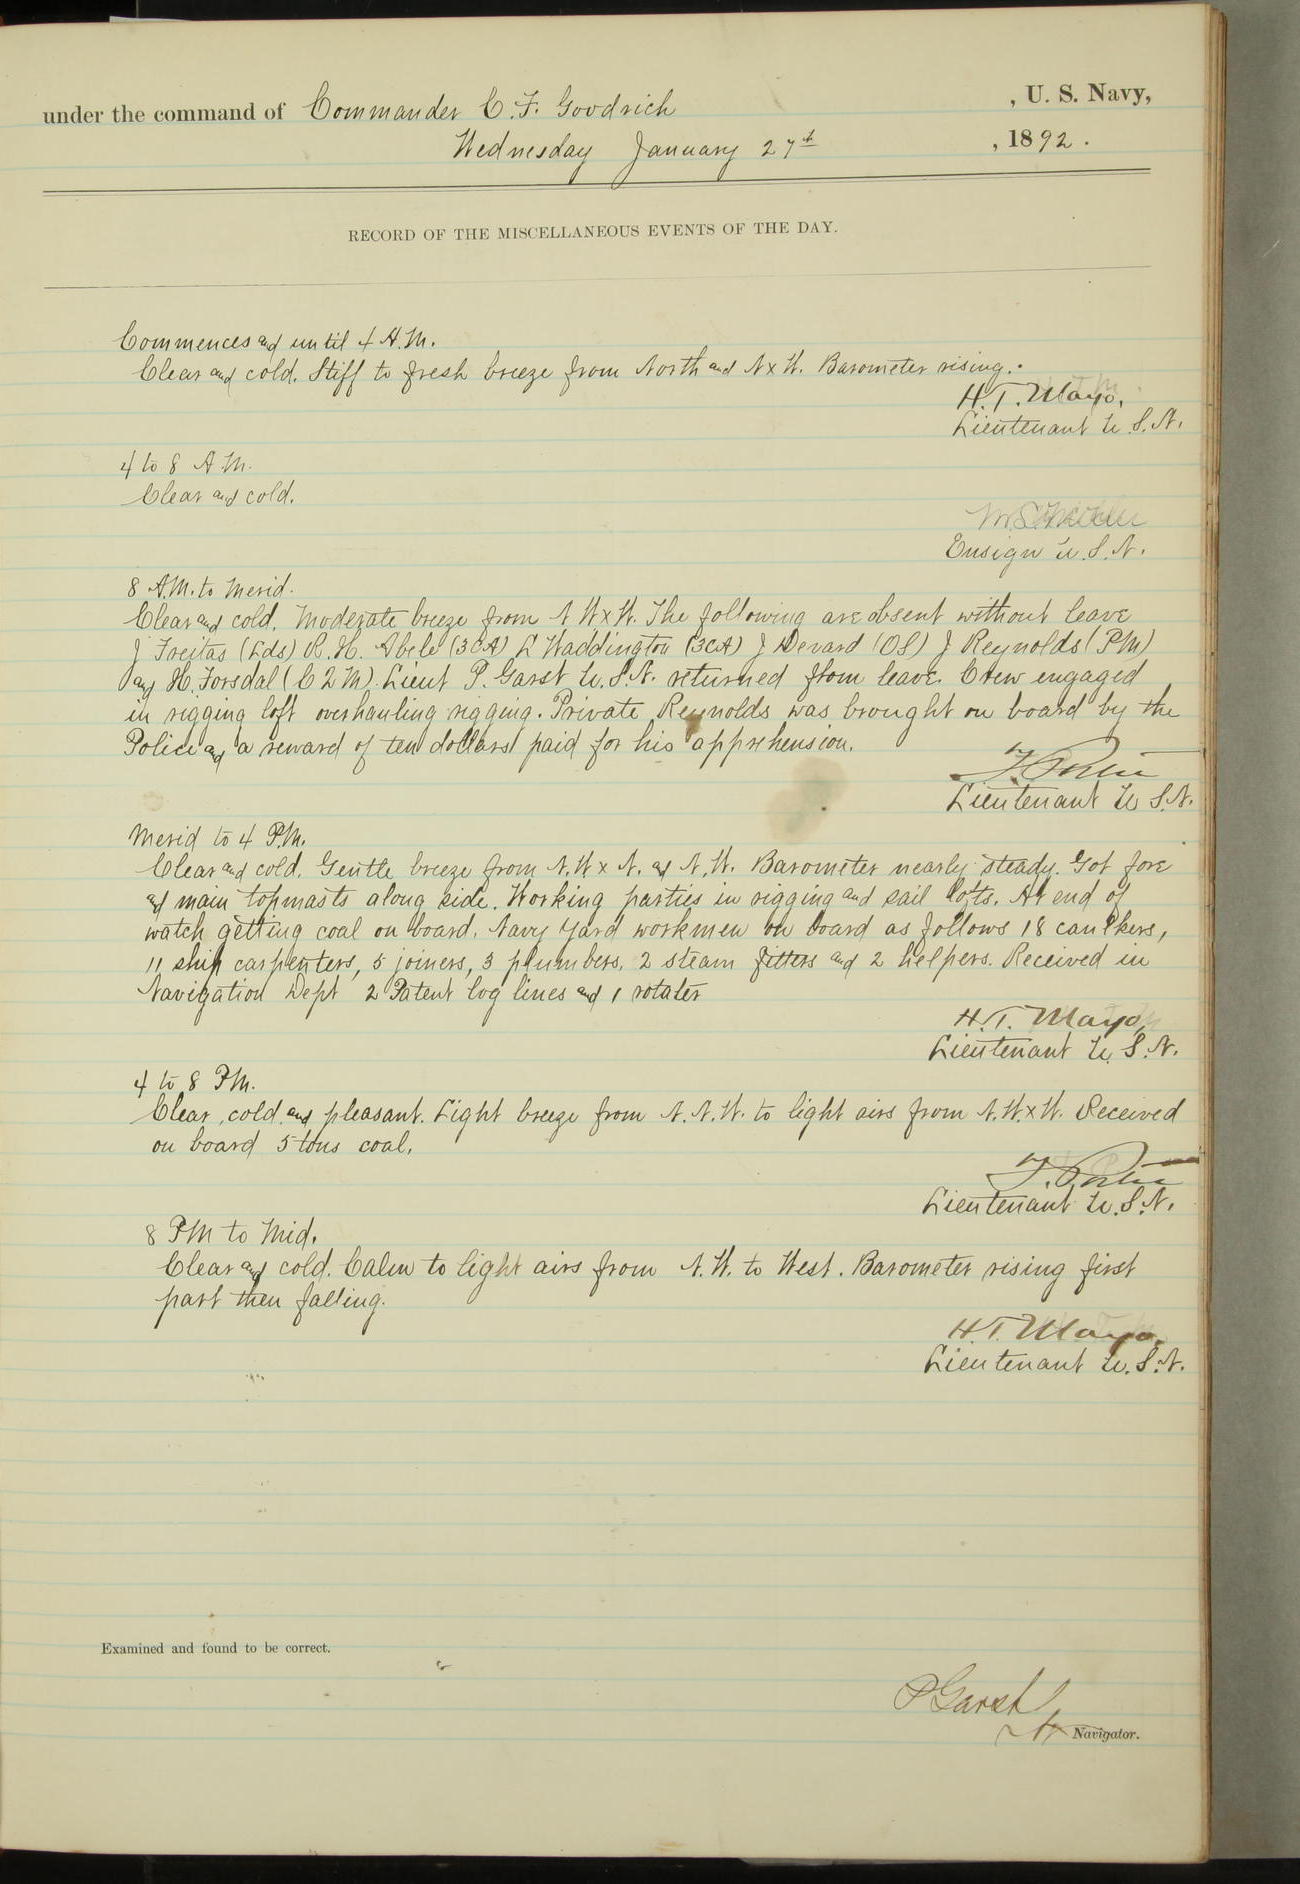 under the command of Commander C. F. Goodrich , U. S. Navy,
Wednesday January 27th , 1892 .
RECORD OF THE MISCELLANEOUS EVENTS OF THE DAY.
Commences and until 4 A.M.
Clear and cold. Stiff to fresh breeze from North and N x W. Barometer rising.
H. T. Mayo,
Lieutenant U.S.N.
4 to 8 A.M.
Clear and cold.
Ensign U.S.N.
8 A.M. to Merid.
Clear and cold. Moderate breeze from N W x W. The following are absent without leave
J Freitas (Lds) R. H. Abele (3CA) L Waddington (3CA) J Devard (OS) J Reynolds (PM)
and H. Forsdal (C2M). Lieut P. Garst U.S.N. returned from leave. Crew engaged
in rigging loft overhauling rigging. Private Reynolds was brought on board by the
Police and a reward of ten dollars paid for his apprehension.
Lieutenant U.S.N.
Merid to 4 P.M.
Clear and cold. Gentle breeze from N.W x N. and N.W. Barometer nearly steady. Got fore
and main topmasts along side. Working parties in rigging and sail lofts. At end of
watch getting coal on board. Navy Yard workmen on board as follows 18 caulkers,
11 ship carpenters, 5 joiners, 3 plumbers, 2 steam fitters and 2 helpers. Received in
Navigation Dept 2 Patent log lines and 1 rotater
H. T. Mayo,
Lieutenant U.S.N.
4 to 8 PM.
Clear, cold and pleasant. Light breeze from N.N.W. to light airs from N.W x W. Received
on board 5 tons coal.
Lieutenant U.S.N.
8 PM to Mid.
Clear and cold. Calm to light airs from N.W. to West. Barometer rising first
part then falling.
H. T. Mayo.
Lieutenant U.S.N.
Examined and found to be correct.
P Garst
Navigator.